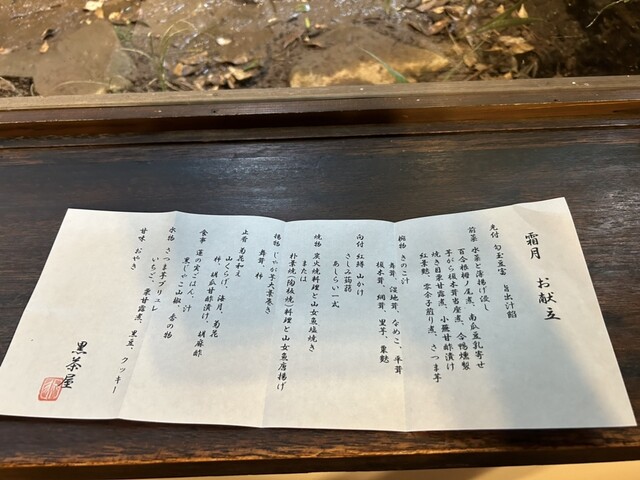 霜月　お献立
先付　勾玉豆富　旨出汁餡
前菜　水菜と薄揚げ浸し
百合根梅ノ尾煮、南瓜豆乳寄せ
芋がら榎本茸当座煮、合鴨燻製
焼き目栗甘露煮、小蕪甘酢漬け
紅葉麩、零余子煎り煮、さつま芋
椀物　きのこ汁
舞茸、湿地茸、なめこ、平茸
榎木茸、絹茸、里芋、粟麩
向付　紅鱒　山かけ
さしみ蒟蒻
あしらい一式
焼物　炭火焼料理と山女魚塩焼き
または
朴葉焼(陶板焼)料理と山女魚唐揚げ
揚物　じゃが芋大葉巻き
舞茸、柿
上肴　菊花和え
山くらげ、海月、菊花
柿、胡瓜甘酢漬け、胡麻酢
食事　蓮の実ごはん、汁
黒じゃこ山椒、香の物
水物　さつま芋ブリュレ
いちご、栗甘露煮、黒豆、クッキー
甘味　おやき
黒茶屋